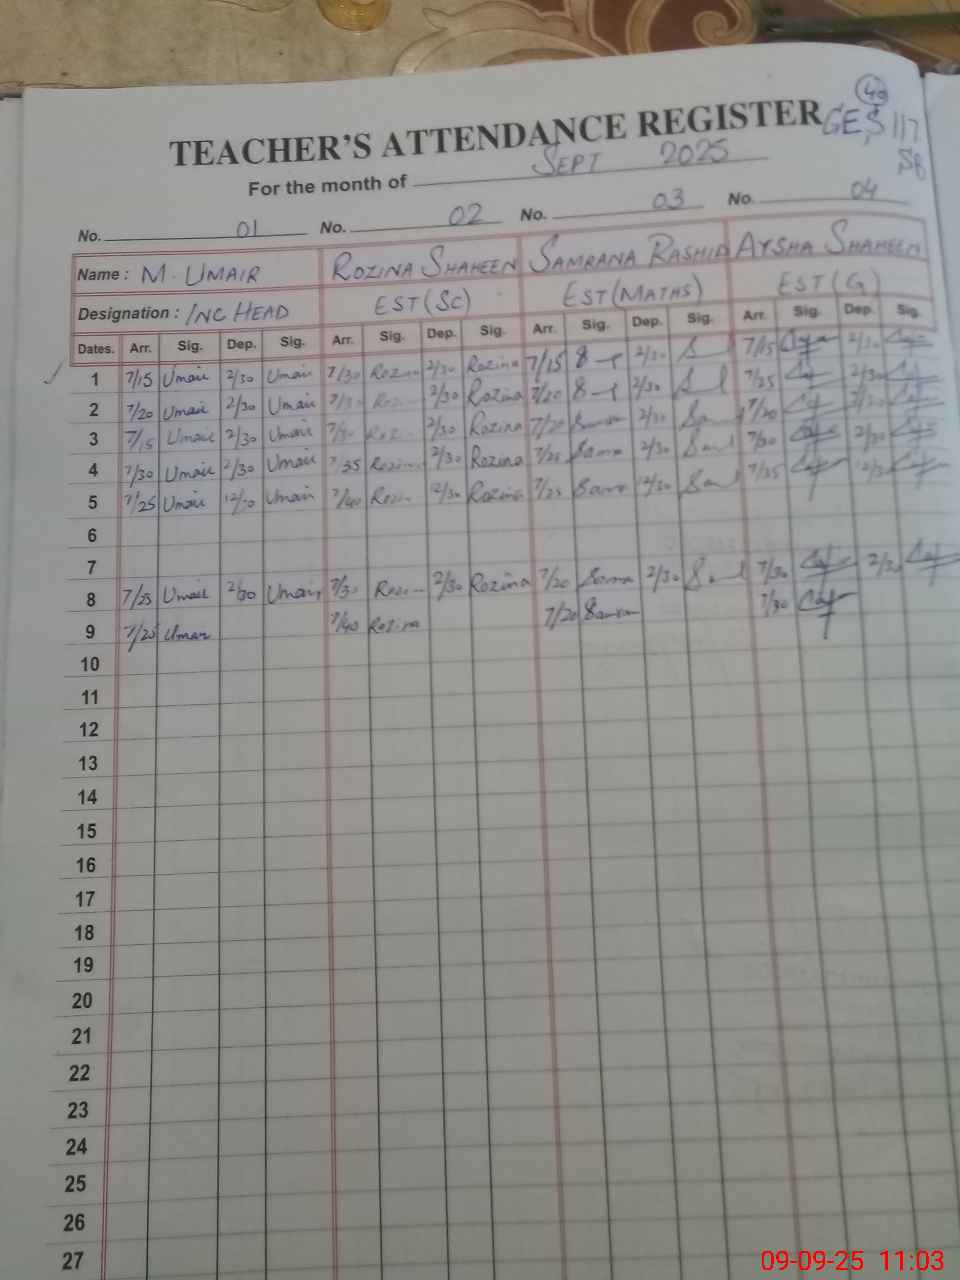 40
TEACHER'S ATTENDANCE REGISTER GES 117
SB
For the month of SEPT 2025
No. 01 No. 02 No. 03 No. 04
Name : M. UMAIR ROZINA SHAHEEN SAMRANA RASHID AYSHA SHAHEEN
Designation : INC HEAD EST (SC) EST (MATHS) EST (G)
Dates. Arr. Sig. Dep. Sig. Arr. Sig. Dep. Sig. Arr. Sig. Dep. Sig. Arr. Sig. Dep. Sig.
1 7/15 Umair 2/30 Umair 7/30 Rozina 2/30 Rozina 7/15 2/30 7/15 2/30
2 7/20 Umair 2/30 Umair 7/30 2/30 Rozina 7/20 2/30 7/25 2/30
3 7/15 Umair 2/30 Umair 7/30 2/30 Rozina 7/20 2/30 7/20 2/30
4 7/30 Umair 2/30 Umair 7/35 Rozina 2/30 Rozina 2/30 7/30 2/30
5 7/25 Umair 12/30 Umair 7/40 12/30 Rozina 7/25 7/35 12/30
6
7
8 7/25 Umair 2/30 Umair 7/30 2/30 Rozina 7/20 2/30 7/30 2/30
9 7/25 Umair 7/40 Rozina 7/20 7/30
10
11
12
13
14
15
16
17
18
19
20
21
22
23
24
25
26
27
09-09-25 11:03